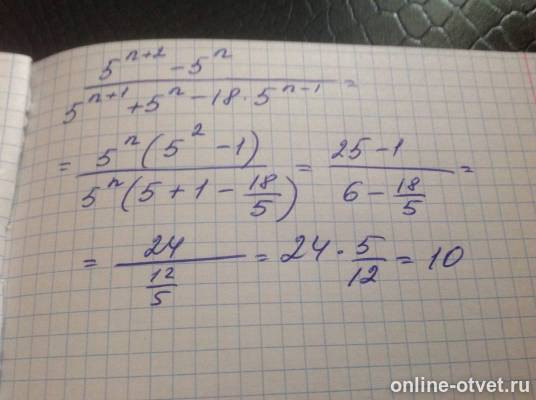 5^(n+2) - 5^n / 5^(n+1) + 5^n - 18 · 5^(n-1) =
= 5^n (5^2 - 1) / 5^n (5 + 1 - 18/5) = 25 - 1 / 6 - 18/5 =
= 24 / 12/5 = 24 · 5/12 = 10
online-otvet.ru